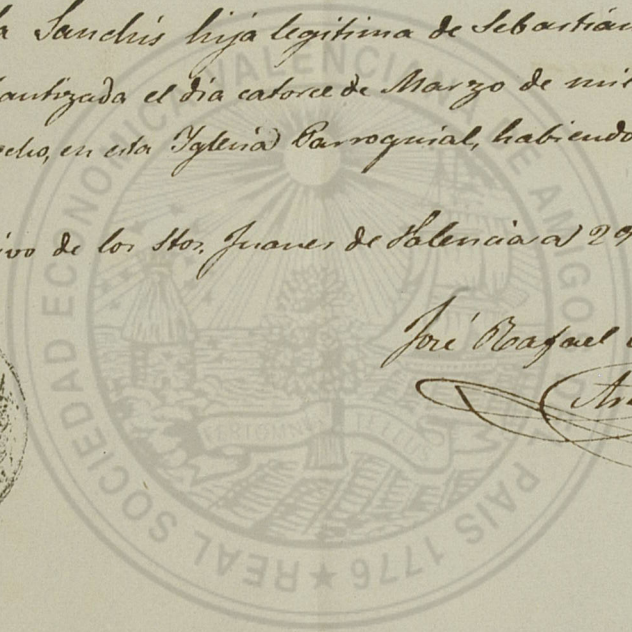 a Sanchis hija legitima de Sebastián
bautizada el dia catorce de Marzo de mil
ocho, en esta Yglesia Parroquial, habiendo
ivo de los Stos. Juanes de Valencia a 29
José Rafael
REAL SOCIEDAD ECONOMICA VALENCIANA DE AMIGOS DEL PAIS 1776 ★
FERTOMNIA TELLUS